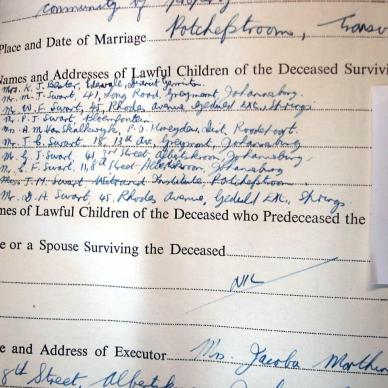 community of
Place and Date of Marriage Potchefstroom, Transv
Names and Addresses of Lawful Children of the Deceased Survivi
Mrs. K. J. Bester,
Mr. M. J. Swart, 41, Long Road, Greymont, Johannesburg.
Mr. W. F. Swart, 45, Rhodes Avenue, Geduld Ext., Springs
Mr. P. J. Swart, Bloemfontein
Mrs. A. M. van Schalkwyk, P.O. Dist. Roodepoort.
Mr. T. C. Swart, 18, 13th Av., Greymont, Johannesburg
Mr. G. J. Swart, 41, Street, Albertskroon, Johannesburg.
F. Swart, 11, 8th Street, Albertskroon, Johannesburg
J. H. Swart, Institute, Potchefstroom
Mr. D. A. Swart, 45, Rhodes Avenue, Geduld Ext., Springs.
mes of Lawful Children of the Deceased who Predeceased the
e or a Spouse Surviving the Deceased
NIL
e and Address of Executor Mrs. Jacoba
8th Street,